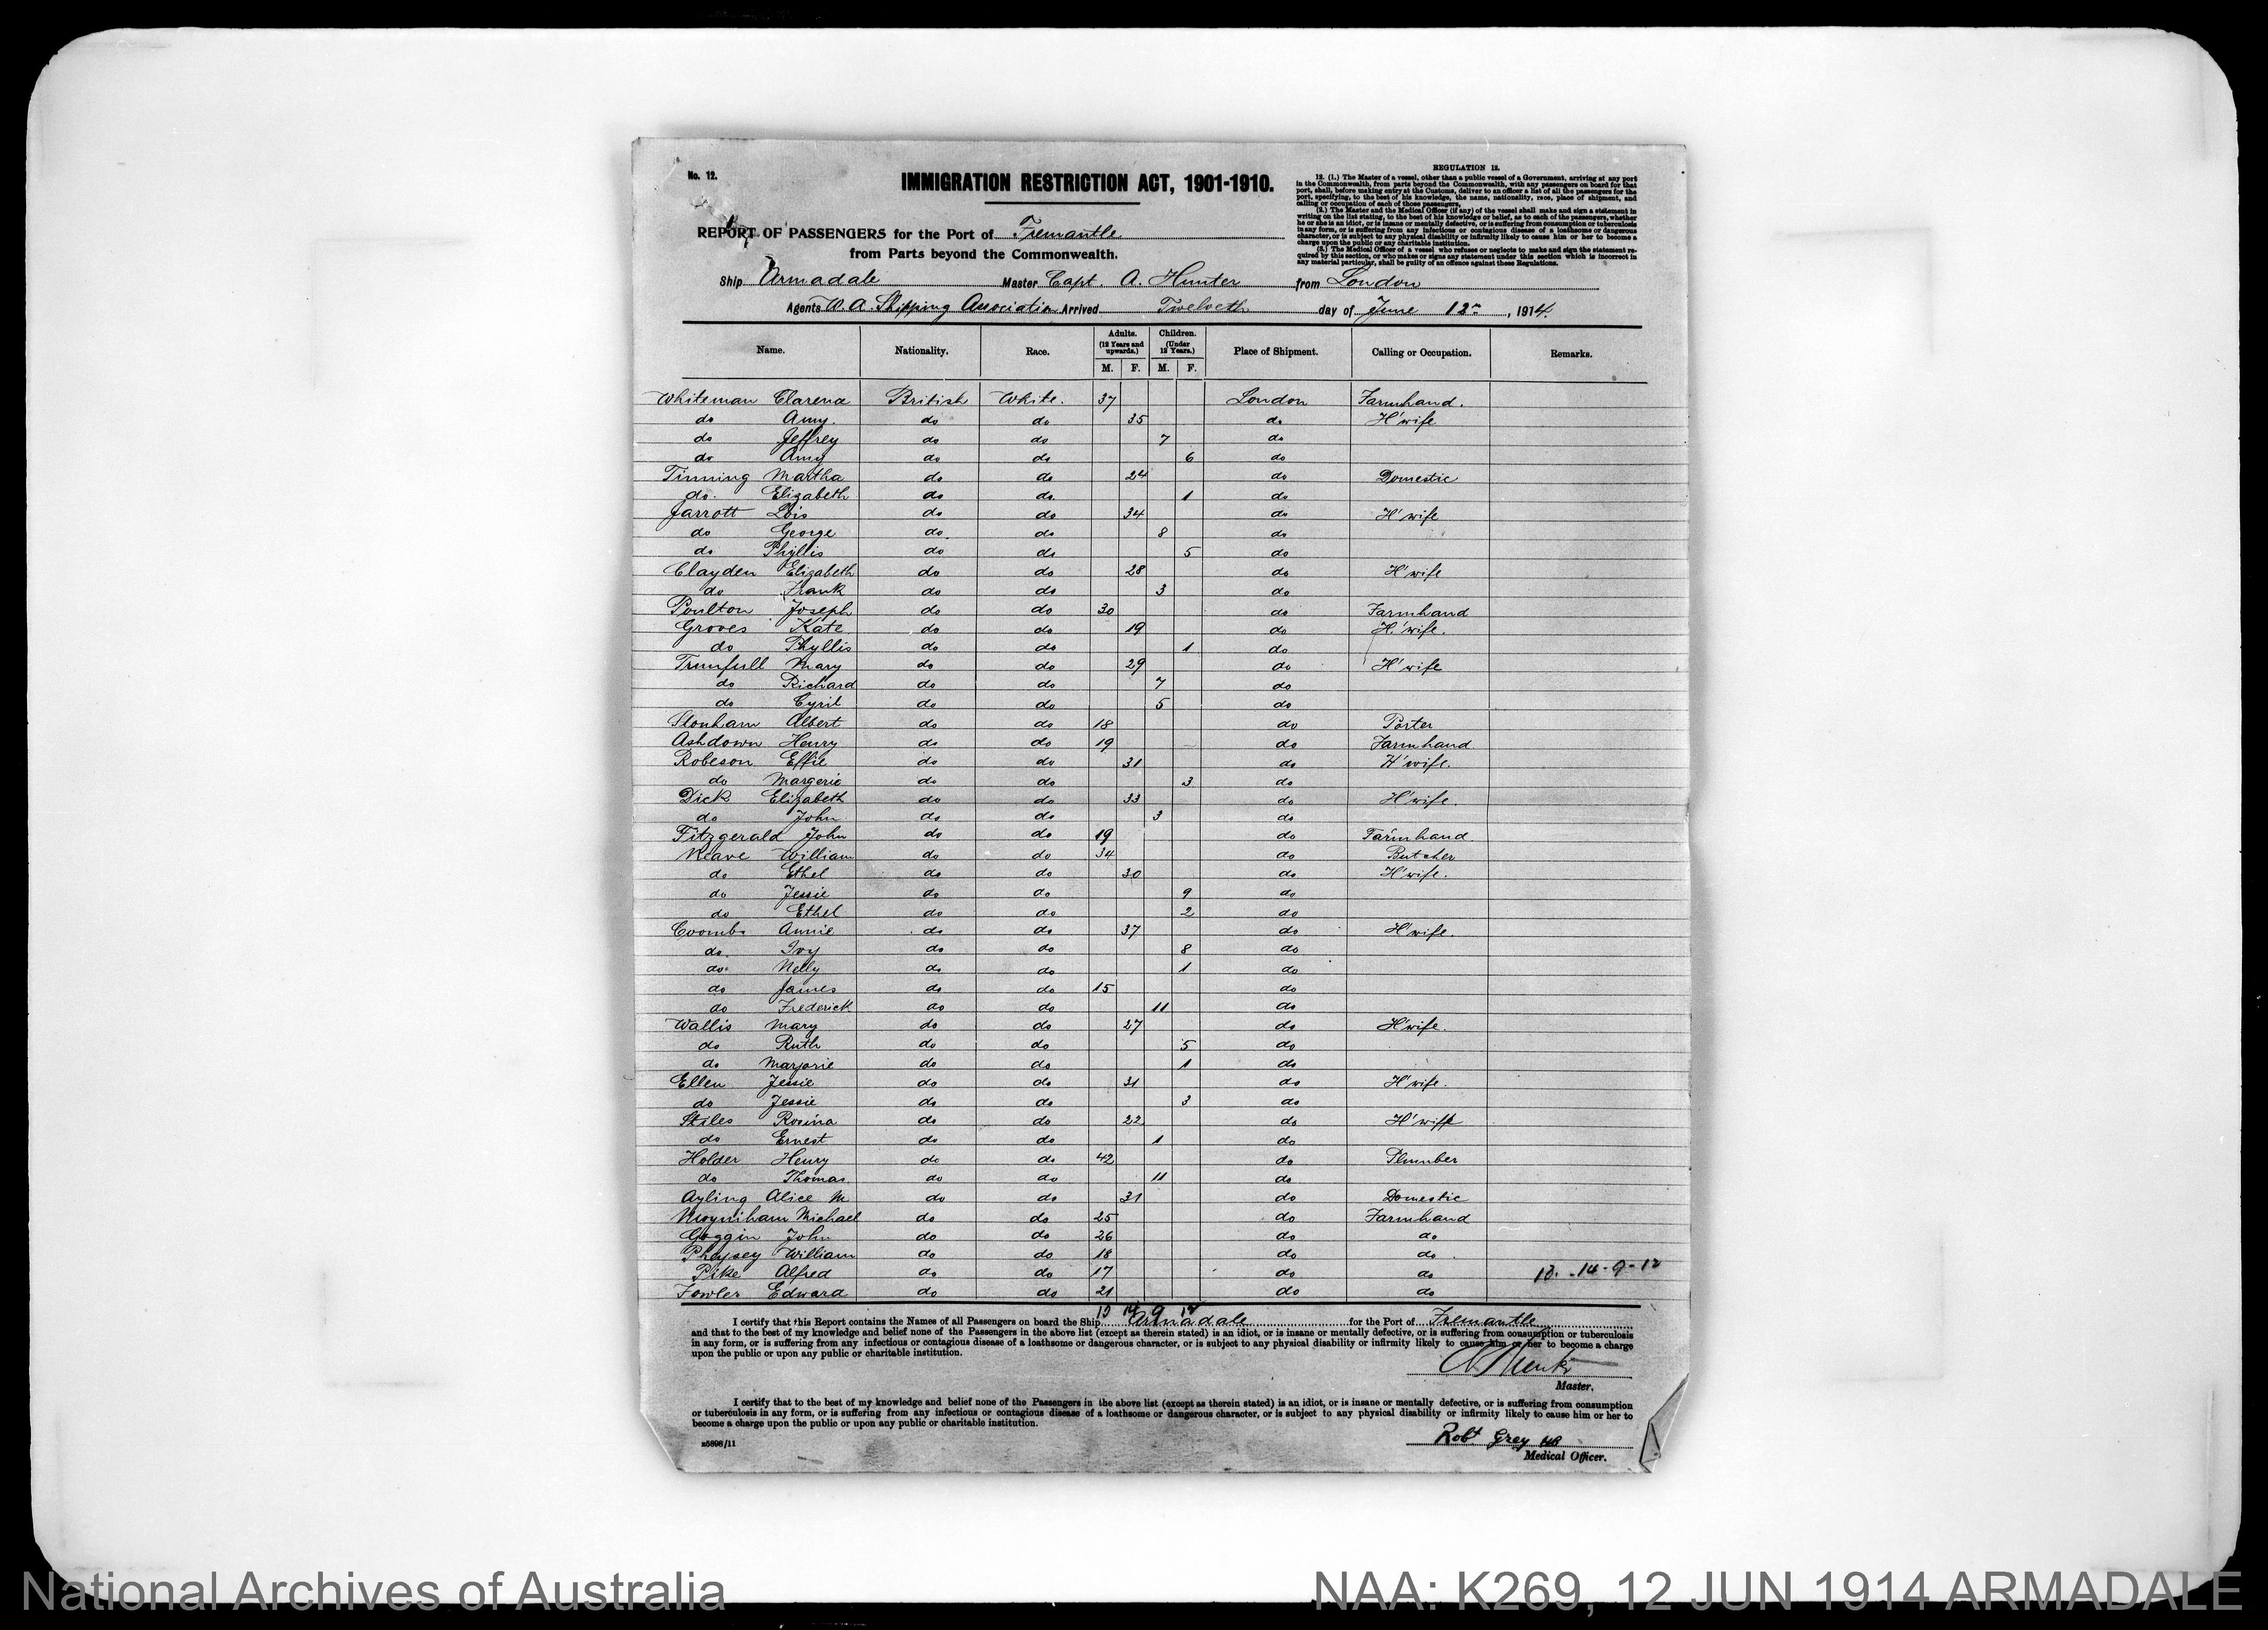 No. 12.
IMMIGRATION RESTRICTION ACT, 1901-1910.
REGULATION 12.
12. (1.) The Master of a vessel, other than a public vessel of a Government, arriving at any port
in the Commonwealth, from parts beyond the Commonwealth, with any passengers on board for that
port, shall, before making entry at the Customs, deliver to an officer a list of all the passengers for the
port, specifying, to the best of his knowledge, the name, nationality, race, place of shipment, and
calling or occupation of each of those passengers.
(2.) The Master and the Medical Officer (if any) of the vessel shall make and sign a statement in
writing on the list stating, to the best of his knowledge or belief, as to each of the passengers, whether
he or she is an idiot, or is insane or mentally defective, or is suffering from consumption or tuberculosis
in any form, or is suffering from any infectious or contagious disease of a loathsome or dangerous
character, or is subject to any physical disability or infirmity likely to cause him or her to become a
charge upon the public or any charitable institution.
(3.) The Medical Officer of a vessel who refuses or neglects to make and sign the statement re-
quired by this section, or who makes or signs any statement under this section which is incorrect in
any material particular, shall be guilty of an offence against these Regulations.
REPORT OF PASSENGERS for the Port of Fremantle
from Parts beyond the Commonwealth.
Ship Armadale Master Capt. A. Hunter from London
Agents W. A. Shipping Association Arrived Twelveth day of June 12th, 1914.
Name. Nationality. Race. Adults. (12 Years and upwards.) Children. (Under 12 Years.) Place of Shipment. Calling or Occupation. Remarks.
M. F. M. F.
Whiteman Clarence British White. 37 London Farmhand.
do Amy. do do 35 do H'wife
do Jeffrey do do 7 do
do Amy do do 6 do
Tinning Martha do do 24 do Domestic
do. Elizabeth do do. 1 do
Jarrott Lois do do 34 do H'wife
do George do. do 8 do
do Phyllis do do 5 do
Clayden Elizabeth do do 28 do H'wife
do Frank do do 3 do
Poulton Joseph do do 30 do Farmhand
Groves Kate do do 19 do H.'wife.
do Phyllis do do 1 do
Trumfull Mary do do 29 do H'wife
do Richard do do 7 do
do Cyril do do 5 do
Stonham Albert do do 18 do Porter
Ashdown Henry do do 19 do Farmhand
Robeson Effie do do 31 do H'wife.
do Margerie do do 3 do
Dick Elizabeth do do 33 do H'wife.
do John do do 3 do
Fitzgerald John do do 19 do Farmhand
Neave William do do 34 do Butcher
do Ethel do do 30 do H'wife.
do Jessie do do 9 do
do Ethel do do 2 do
Coombs Annie do do 37 do H'wife.
do. Ivy do do 8 do
do. Nelly do do 1 do
do James do do 15 do
do Frederick do do 11 do
Wallis Mary do do 27 do H'wife.
do Ruth do do 5 do
do Marjorie do do 1 do
Ellen Jessie do do 31 do H'wife.
do Jessie do do 3 do
Stiles Rosina do do 22 do H'wife
do Ernest do do 1 do
Holder Henry do do 42 do Plumber
do Thomas do do 11 do
Ayling Alice M do do 31 do Domestic
Moyniham Michael do do 25 do Farmhand
Goggin John do do 26 do do
Pheysey William do do 18 do do
Pike Alfred do do 17 do do 13. -14-9-12
Fowler Edward do do 21 do do
13 14 9 12
I certify that this Report contains the Names of all Passengers on board the Ship Armadale for the Port of Fremantle
and that to the best of my knowledge and belief none of the Passengers in the above list (except as therein stated) is an idiot, or is insane or mentally defective, or is suffering from consumption or tuberculosis
in any form, or is suffering from any infectious or contagious disease of a loathsome or dangerous character, or is subject to any physical disability or infirmity likely to cause him or her to become a charge
upon the public or upon any public or charitable institution.
A Hunter
Master.
I certify that to the best of my knowledge and belief none of the Passengers in the above list (except as therein stated) is an idiot, or is insane or mentally defective, or is suffering from consumption
or tuberculosis in any form, or is suffering from any infectious or contagious disease of a loathsome or dangerous character, or is subject to any physical disability or infirmity likely to cause him or her to
become a charge upon the public or upon any public or charitable institution.
Robt Grey MB
Medical Officer.
National Archives of Australia
NAA: K269, 12 JUN 1914 ARMADALE